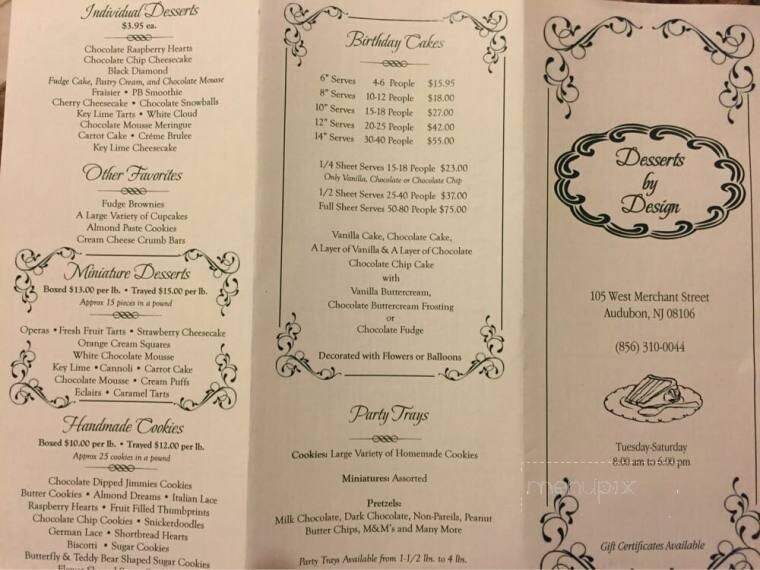 Individual Desserts
$3.95 ea.
Chocolate Raspberry Hearts
Chocolate Chip Cheesecake
Black Diamond
Fudge Cake, Pastry Cream, and Chocolate Mousse
Fraisier • PB Smoothie
Cherry Cheesecake • Chocolate Snowballs
Key Lime Tarts • White Cloud
Chocolate Mousse Meringue
Carrot Cake • Créme Brulee
Key Lime Cheesecake
Other Favorites
Fudge Brownies
A Large Variety of Cupcakes
Almond Paste Cookies
Cream Cheese Crumb Bars
Miniature Desserts
Boxed $13.00 per lb. • Trayed $15.00 per lb.
Approx 15 pieces in a pound
Operas • Fresh Fruit Tarts • Strawberry Cheesecake
Orange Cream Squares
White Chocolate Mousse
Key Lime • Cannoli • Carrot Cake
Chocolate Mousse • Cream Puffs
Eclairs • Caramel Tarts
Handmade Cookies
Boxed $10.00 per lb. • Trayed $12.00 per lb.
Approx 25 cookies in a pound
Chocolate Dipped Jimmies Cookies
Butter Cookies • Almond Dreams • Italian Lace
Raspberry Hearts • Fruit Filled Thumbprints
Chocolate Chip Cookies • Snickerdoodles
German Lace • Shortbread Hearts
Biscotti • Sugar Cookies
Butterfly & Teddy Bear Shaped Sugar Cookies
Birthday Cakes
6" Serves 4-6 People $15.95
8" Serves 10-12 People $18.00
10" Serves 15-18 People $27.00
12" Serves 20-25 People $42.00
14" Serves 30-40 People $55.00
1/4 Sheet Serves 15-18 People $23.00
Only Vanilla, Chocolate or Chocolate Chip
1/2 Sheet Serves 25-40 People $37.00
Full Sheet Serves 50-80 People $75.00
Vanilla Cake, Chocolate Cake,
A Layer of Vanilla & A Layer of Chocolate
Chocolate Chip Cake
with
Vanilla Buttercream,
Chocolate Buttercream Frosting
or
Chocolate Fudge
Decorated with Flowers or Balloons
Party Trays
Cookies: Large Variety of Homemade Cookies
Miniatures: Assorted
Pretzels:
Milk Chocolate, Dark Chocolate, Non-Pareils, Peanut
Butter Chips, M&M's and Many More
Party Trays Available from 1-1/2 lbs. to 4 lbs.
Desserts
by
Design
105 West Merchant Street
Audubon, NJ 08106
(856) 310-0044
Tuesday-Saturday
8:00 am to 6:00 pm
menupix
Gift Certificates Available